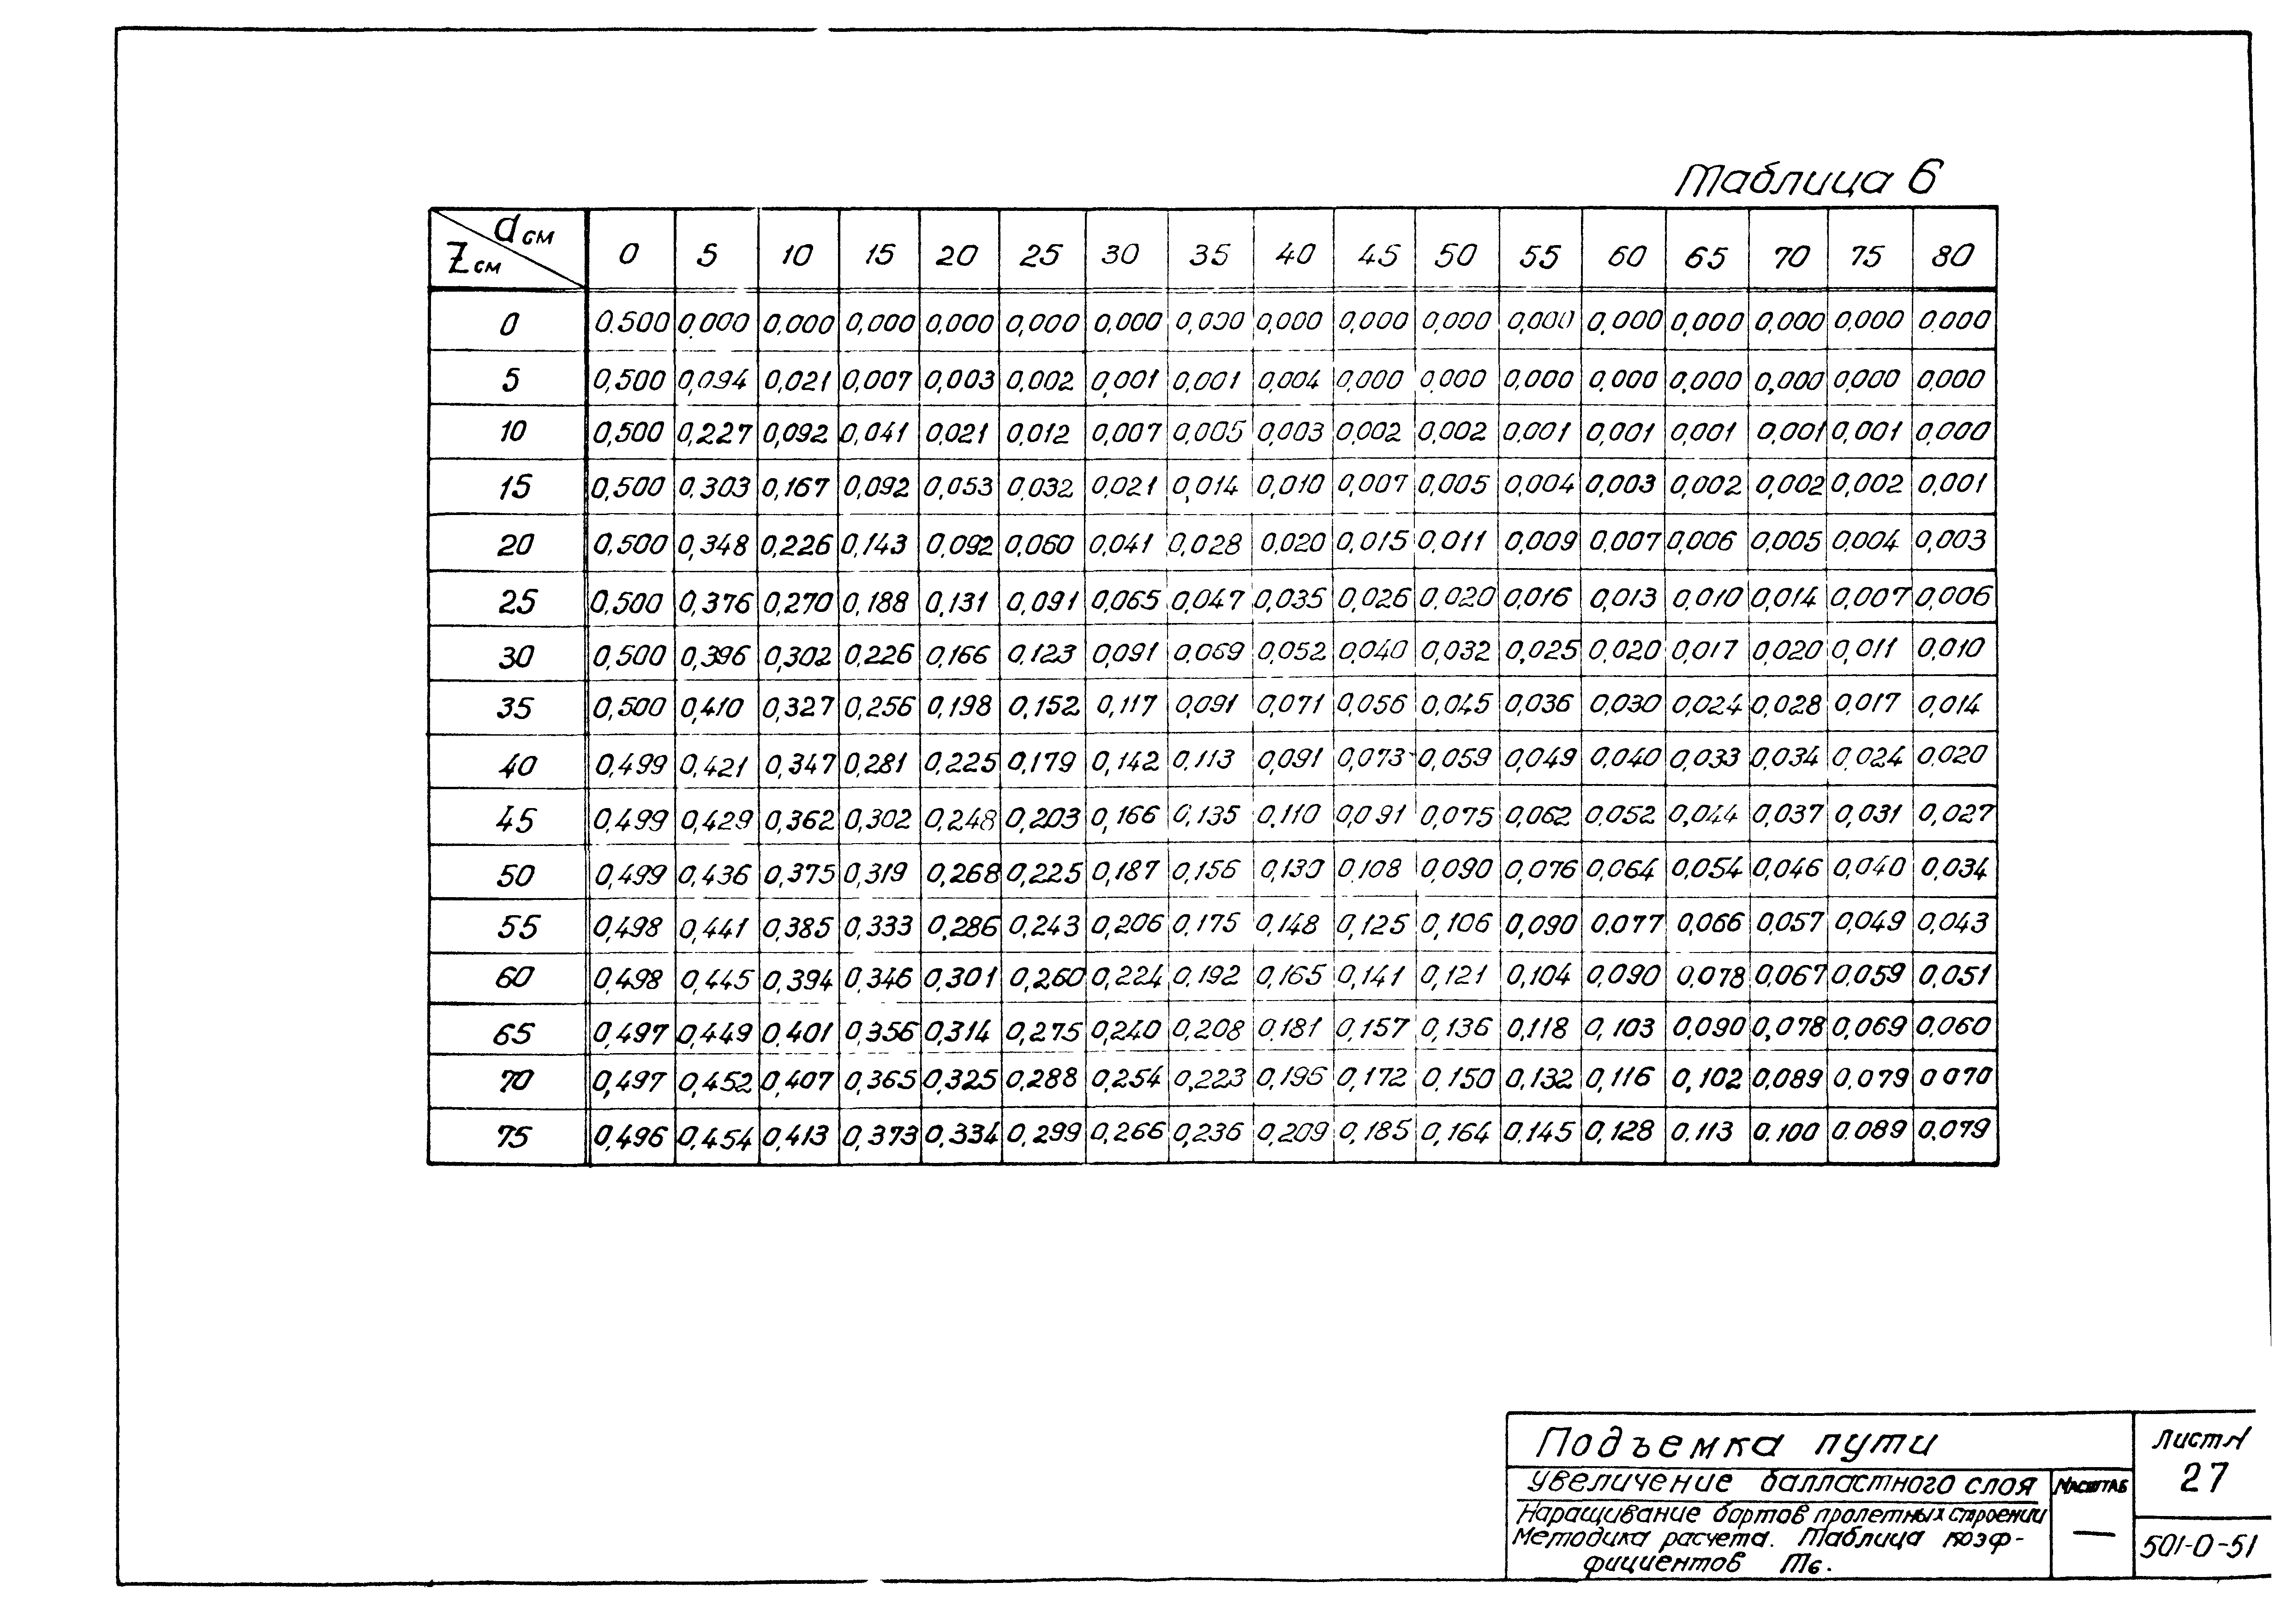 Таблица 6
d см
Z см 0 5 10 15 20 25 30 35 40 45 50 55 60 65 70 75 80
0 0.500 0,000 0,000 0,000 0,000 0,000 0,000 0,000 0,000 0,000 0,000 0,000 0,000 0,000 0,000 0,000 0.000
5 0,500 0,094 0,021 0,007 0,003 0,002 0,001 0,001 0,004 0,000 0,000 0,000 0,000 0,000 0,000 0,000 0,000
10 0,500 0,227 0,092 0,041 0,021 0,012 0,007 0,005 0,003 0,002 0,002 0.001 0,001 0,001 0,001 0,001 0,000
15 0,500 0.303 0,167 0,092 0,053 0,032 0,021 0,014 0,010 0,007 0,005 0,004 0,003 0,002 0,002 0,002 0,001
20 0,500 0,348 0,226 0,143 0,092 0,060 0,041 0,028 0,020 0,015 0,011 0,009 0,007 0,006 0,005 0,004 0,003
25 0,500 0,376 0,270 0,188 0,131 0,091 0,065 0,047 0,035 0,026 0,020 0,016 0,013 0,010 0,014 0,007 0,006
30 0,500 0,396 0,302 0,226 0,166 0,123 0,091 0.069 0,052 0,040 0,032 0,025 0,020 0,017 0,020 0,011 0,010
35 0,500 0,410 0,327 0,256 0,198 0,152 0,117 0,091 0,071 0,056 0,045 0,036 0,030 0,024 0,028 0,017 0,014
40 0,499 0,421 0,347 0,281 0,225 0,179 0,142 0,113 0,091 0,073 0,059 0,049 0,040 0,033 0,034 0,024 0,020
45 0,499 0,429 0,362 0,302 0,248 0,203 0,166 0,135 0,110 0,091 0,075 0,062 0,052 0,044 0,037 0,031 0,027
50 0,499 0,436 0,375 0,319 0,268 0,225 0,187 0,156 0,130 0,108 0,090 0,076 0,064 0,054 0,046 0,040 0,034
55 0,498 0,441 0,385 0,333 0,286 0,243 0,206 0,175 0,148 0,125 0,106 0,090 0.077 0,066 0,057 0,049 0,043
60 0,498 0,445 0,394 0,346 0,301 0,260 0,224 0,192 0,165 0,141 0,121 0,104 0,090 0.078 0,067 0,059 0,051
65 0,497 0,449 0,401 0,356 0,314 0,275 0,240 0,208 0,181 0,157 0,136 0,118 0,103 0,090 0,078 0,069 0,060
70 0,497 0,452 0,407 0,365 0,325 0,288 0,254 0,223 0,196 0,172 0,150 0,132 0,116 0,102 0,089 0,079 0 070
75 0,496 0,454 0,413 0,373 0,334 0,299 0,266 0,236 0,209 0,185 0,164 0.145 0,128 0.113 0.100 0.089 0,079
Подъемка пути
увеличение балластного слоя
Наращивание бортов пролетных строений
Методика расчета. Таблица коэф-
фициентов m6.
Масштаб
—
Лист N
27
501-0-51